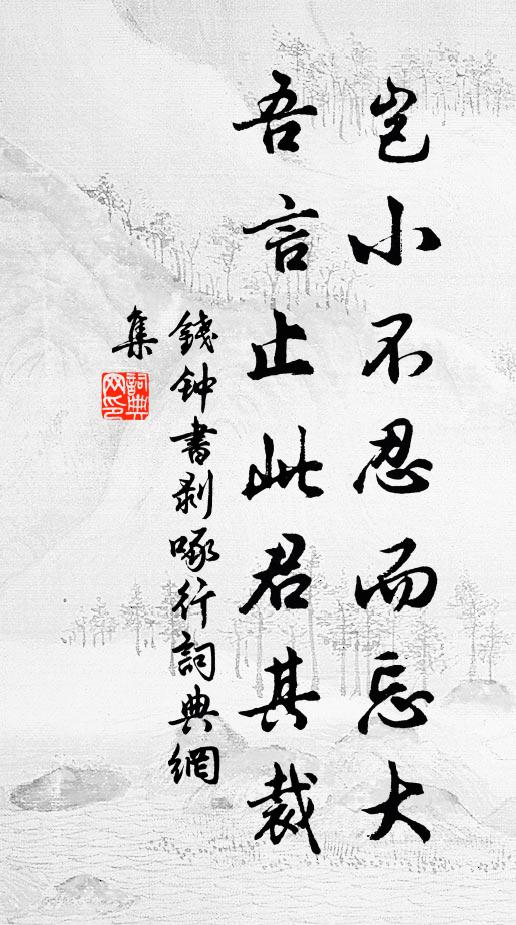 岂小不忍而忘大
吾言止此君其裁
錢钟書剥啄行詞典網
集
詞典网印